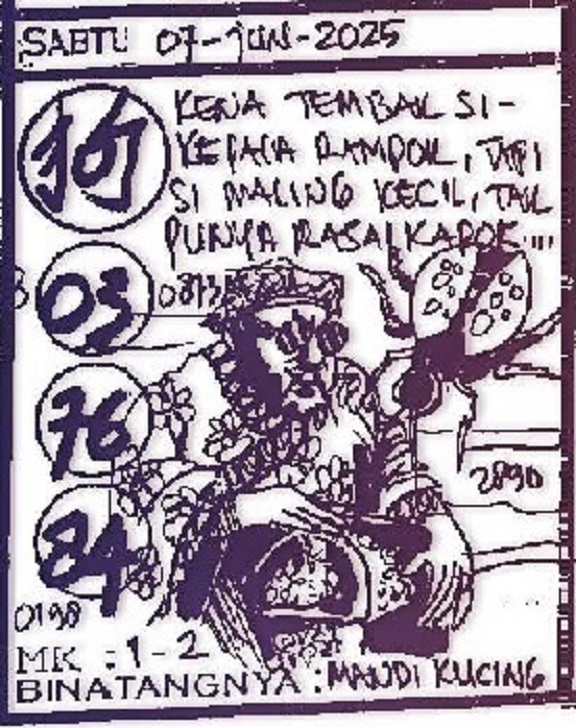 SABTU 07-JUN-2025
狗
KENA TEMBAK SI-
KEPALA RAMPOK, TAPI
SI MALING KECIL, TAK
PUNYA RASA KAPOK....
03
76
2890
84
0198
MK : 1-2
BINATANGNYA : MANDI KUCING